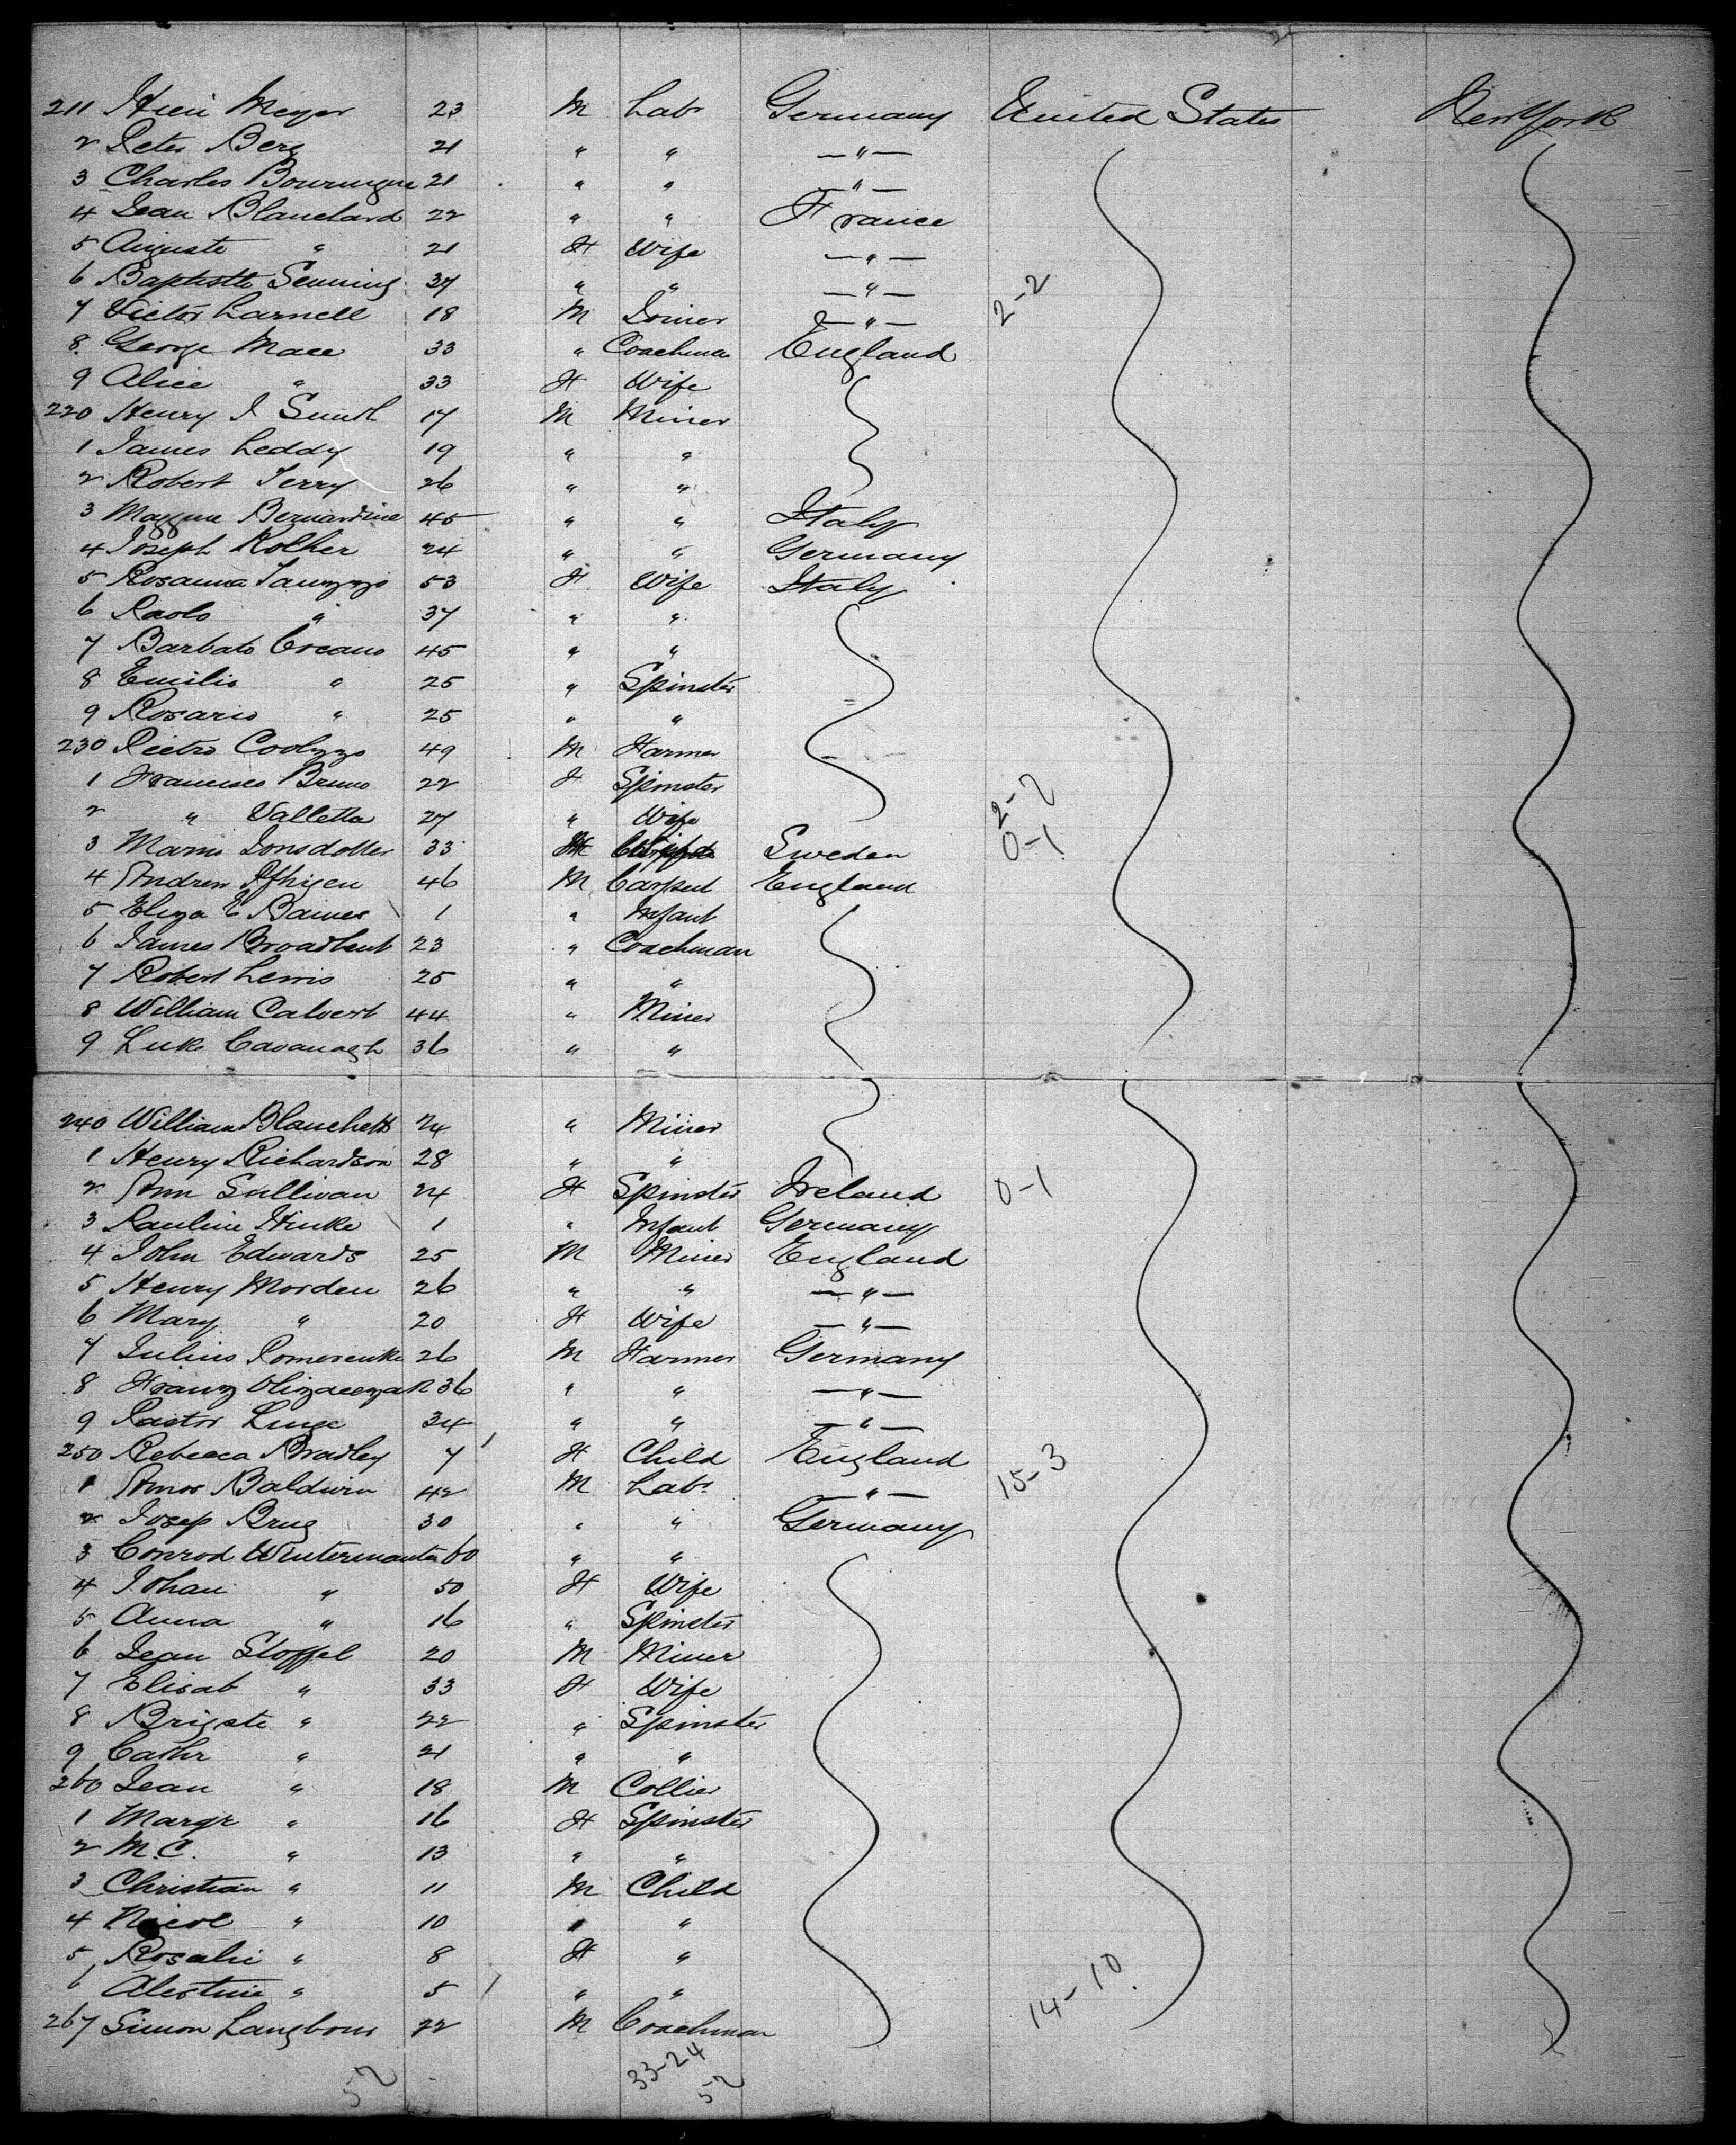 211 Heii Meyer 23 M Labr Germany United States New York
2 Peter Berg 21 " " —"—
3 Charles Bourmigue 21 " " —"—
4 Jean Blanchard 22 " " France
5 Auguste " 21 F Wife —"—
6 Baptistte Senning 37 " " —"— 2-2
7 Victor Larnell 18 M Joiner —"—
8 George Mace 33 " Coachman England
9 Alice " 33 F Wife
220 Henry J Smith 17 M Miner
1 James Leddy 19 " "
2 Robert Terry 26 " "
3 Bernardine 45 " " Italy
4 Joseph Kolher 24 " " Germany
5 Rosanna 53 F Wife Italy
6 Paolo " 37 " "
7 Barbato Creano 45 " "
8 Emilio " 25 " Spinster
9 Rosario " 25 " "
230 Pietro Coolzzo 49 M Farmer
1 Francisco Bruno 22 F Spinster
2 " Valletta 27 " Wife 2-2
3 Jonsdotter 33 F Sweden 0-1
4 Andrew 46 M Carpent England
5 Eliza E Baines 1 " Infant
6 James Broadbent 23 " Coachman
7 Robert Lewis 25 " "
8 William Calvert 44 " Miner
9 Luke Cavanagh 36 " "
240 William Blanchett 24 " Miner
1 Henry Richardson 28 " "
2 Ann Sullivan 24 F Spinster Ireland 0-1
3 Pauline Hinke 1 " Infant Germany
4 John Edwards 25 M Miner England
5 Henry Morden 26 " " —"—
6 Mary " 20 F Wife —"—
7 Julius Pomerenke 26 M Farmer Germany
8 Franz 36 " " —"—
9 Pastor Linge 34 " " —"—
250 Rebecca Bradley 7 F Child England
1 Amos Baldwin 42 M Labr —"— 15-3
2 Josep Brug 30 " " Germany
3 Conrod Wintermantn 60 " "
4 Johan " 50 F Wife
5 Anna " 16 " Spinster
6 Jean Stoffel 20 M Miner
7 Elisab " 33 F Wife
8 Brigste " 22 " Spinster
9 Cathr " 21 " "
260 Jean " 18 M Collier
1 Margr " 16 F Spinster
2 M.C. " 13 " "
3 Christian " 11 M Child
4 Nicol " 10 " "
5 Rosalie " 8 F "
6 " 5 " "
14-10
267 Simon Langbour 22 M Coachman
52 33-24
52